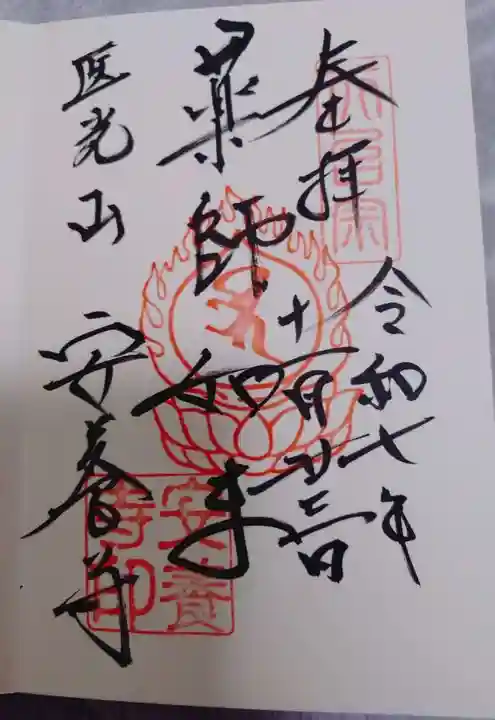 奉拝
令和七年
十一月廿三日
薬師如来
医光山 安養寺
安養寺印